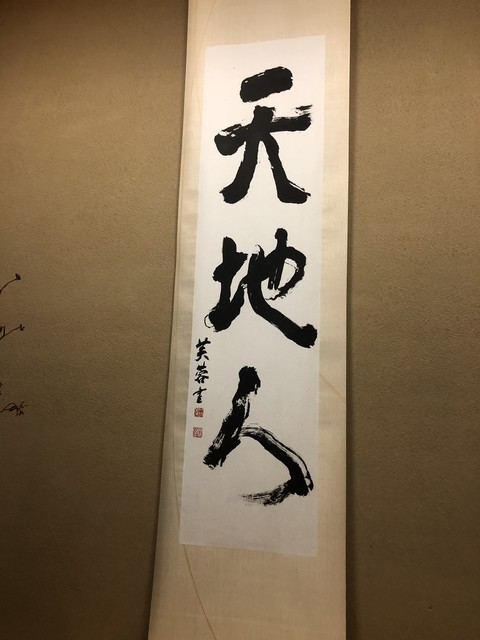 天地人
芙蓉書